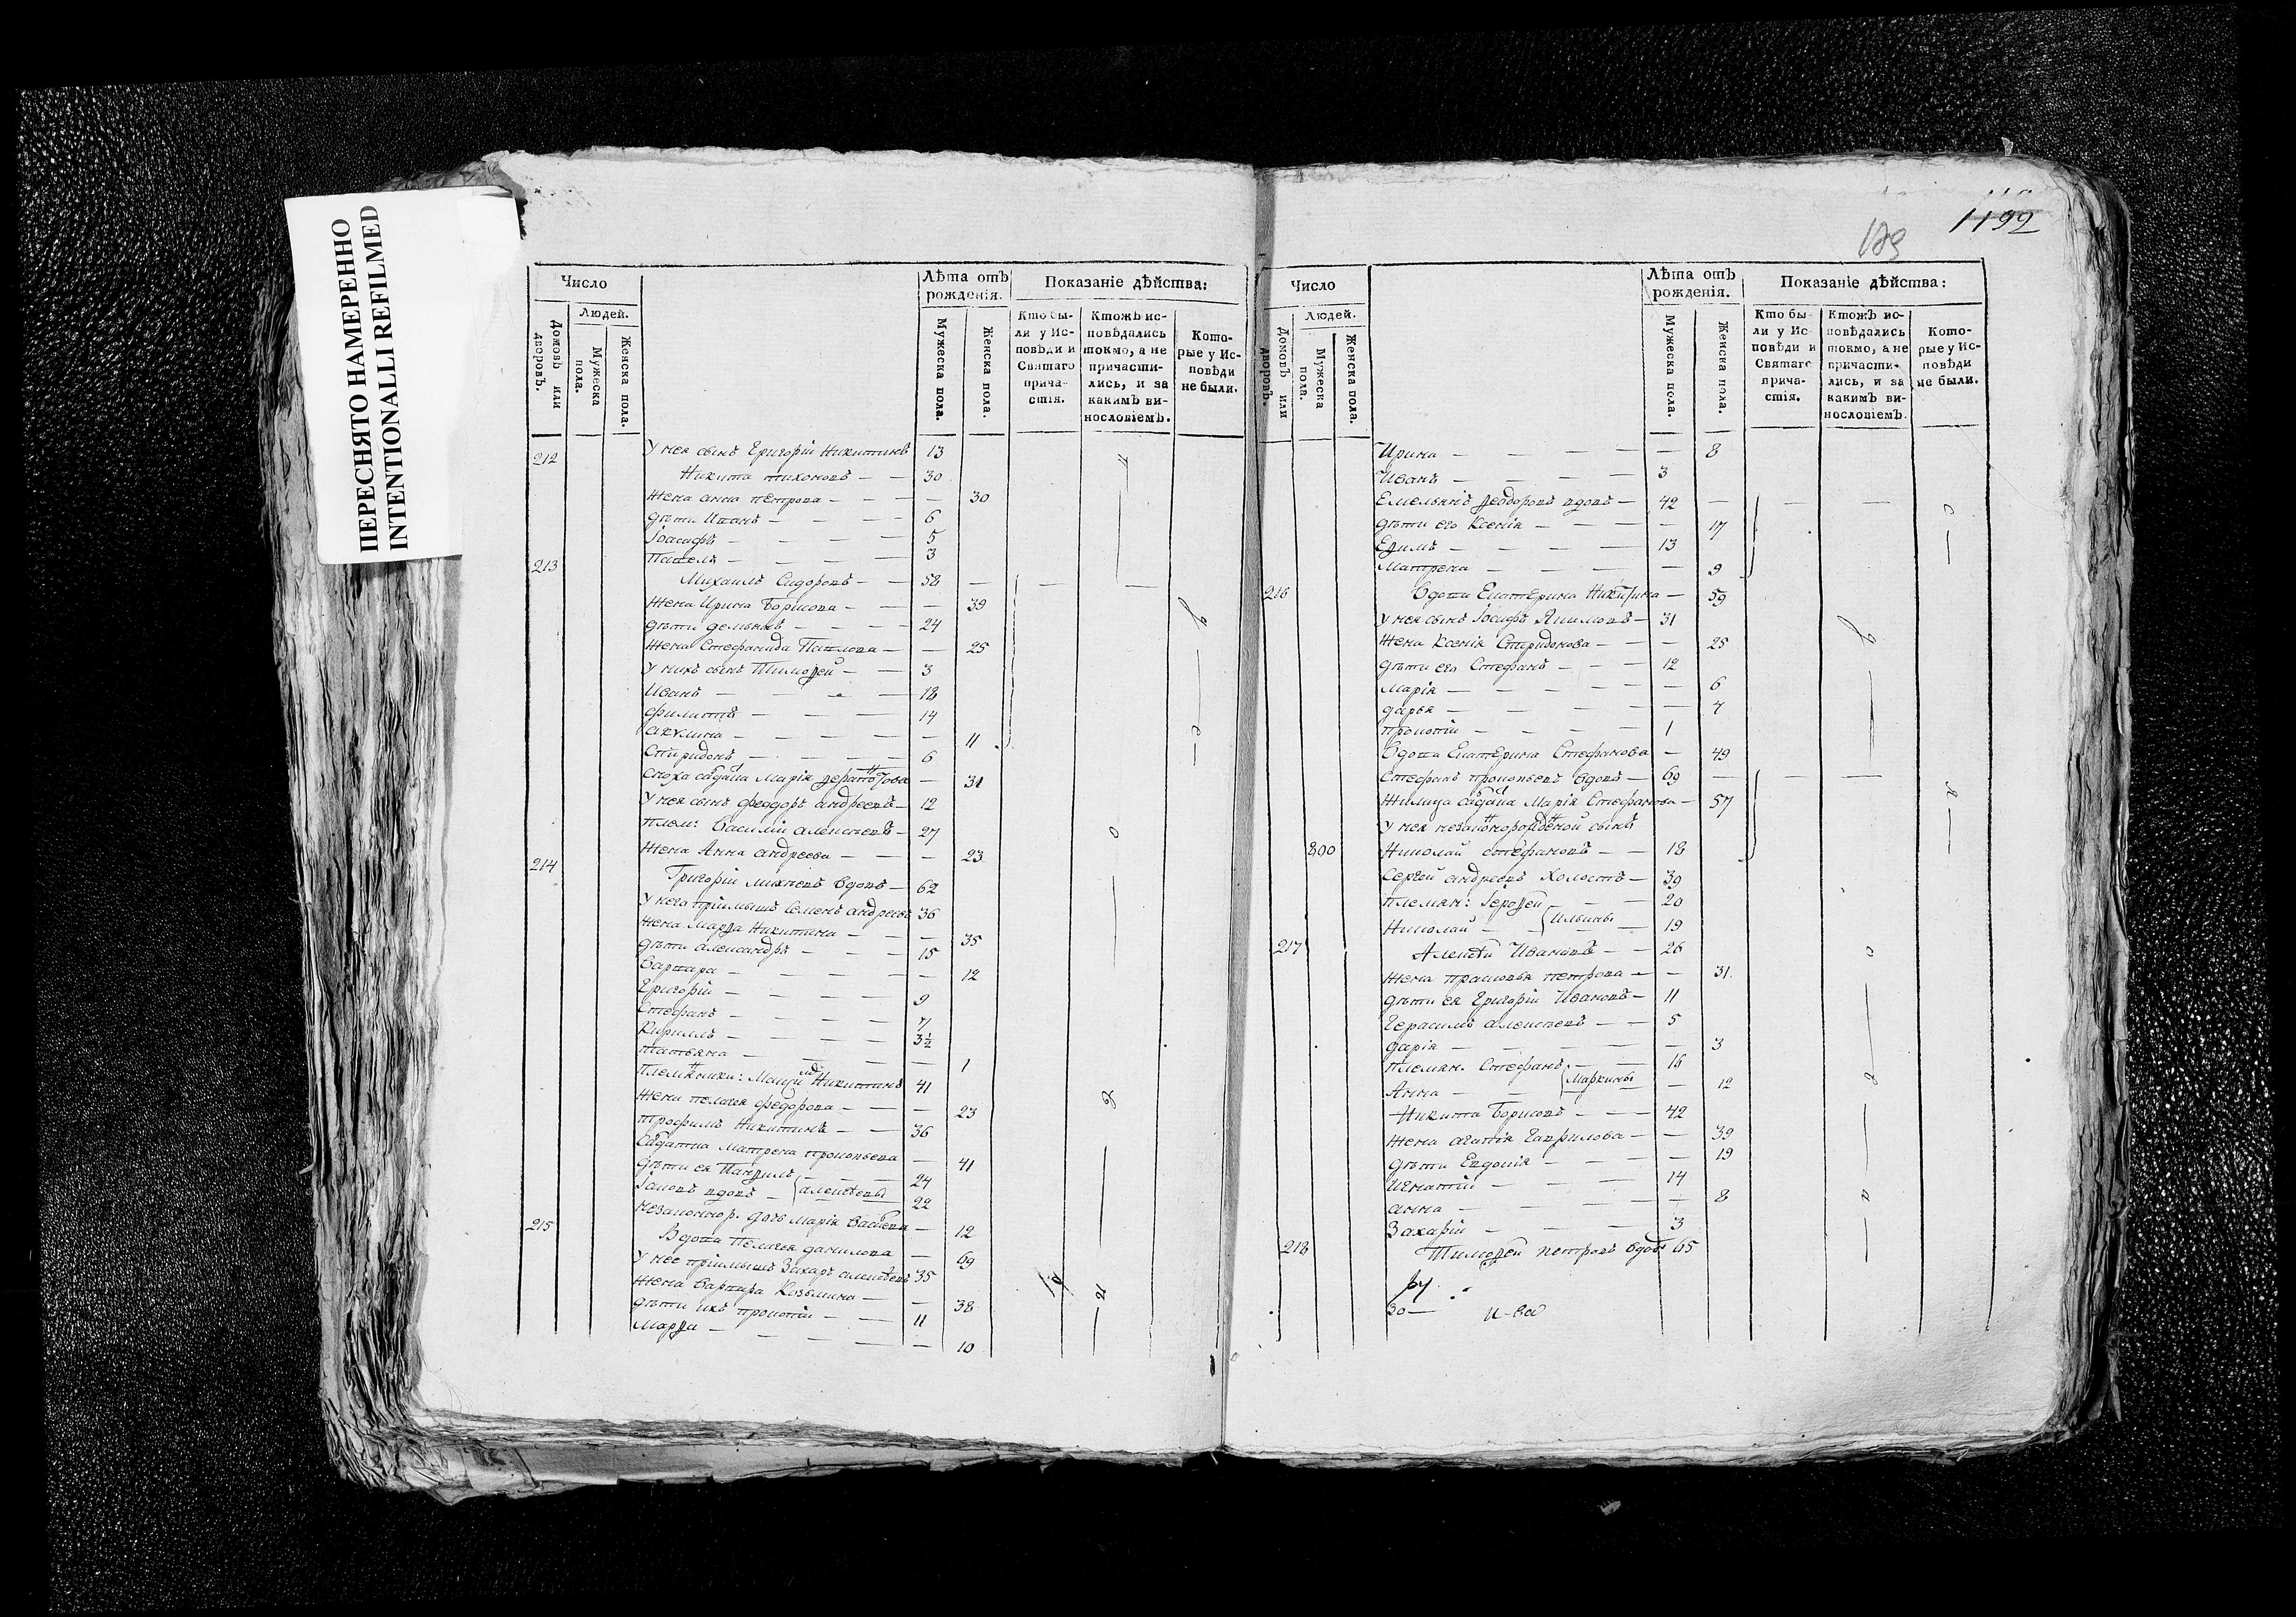 ПЕРЕСНЯТО НАМЕРЕННО
INTENTIONALLI REFILMED
Число
Людей.
Домовъ или дворовъ.
Мужеска пола.
Женска пола.
Лѣта отъ рожденія.
Мужеска пола.
Женска пола.
Показаніе дѣйства:
Кто бы-
ли у Ис-
повѣди и
Святаго
прича-
стія.
Ктожъ ис-
повѣдались
токмо, а не
причасти-
лись, и за
какимъ ви-
нословіемъ.
Кото-
рые у Ис-
повѣди
не были.
У нея сынъ Григорій Никитинъ 13
212 Никита тихоновъ — — 30
Жена анна петрова — — — 30
дѣти Иванъ — — — — 6
Іоасифъ — — — — 5
Павелъ — — — — 3
213 Михаилъ Сидоровъ — — 58 —
Жена Ирина Борисова — — — 39
дѣти демьянъ — — — — 24
Жена Стефанида Павлова — — 25
У нихъ сынъ Тимоѳей — — 3
Иванъ — — — 18
филиппъ — — — 14
акулина — — — — 11
Спиридонъ — — — — 6
Марія — 31
У нея сынъ феодоръ андреевъ — 12
плем: Василій алексѣевъ — 27
Жена Анна андреева — — — 23
214 Григорій вдовъ — 62
У него пріимышъ Семенъ андреевъ 36
Жена Марѳа Никитина — — — 35
дѣти александръ — — — 15
Варвара — — — — — 12
Григорій — — — — 9
Стефанъ — — — — 7
Кирилъ — — — — 3½
татьяна — — — — 1
Племянники: Никитинъ 41
Жена пелагея федорова — — — 23
трофимъ Никитинъ — — 36
Матрена прокопьева — 41
дѣти ея Панфилъ — — — 24
Іаковъ вдовъ — алексѣевы 22
незаконнор. дочь Марія — 12
215 Вдова Пелагея данилова — 69
У нее пріимышъ Захаръ алексѣевъ 35
Жена Варвара Козьмина — — 38
дѣти ихъ прокопій — — 11
Марѳа — — — — 10
1192
189
Число
Людей.
Домовъ или дворовъ.
Мужеска пола.
Женска пола.
Лѣта отъ рожденія.
Мужеска пола.
Женска пола.
Показаніе дѣйства:
Кто бы-
ли у Ис-
повѣди и
Святаго
прича-
стія.
Ктожъ ис-
повѣдались
токмо, а не
причасти-
лись, и за
какимъ ви-
нословіемъ.
Кото-
рые у Ис-
повѣди
не были.
Ирина — — — — — 8
Иванъ — — — — 3
Емельянъ Ѳеодоровъ вдовъ — 42 —
дѣти его Ксенія — — — — 17
Ефимъ — — — — 13
Матрена — — — — 9
216 Вдова Екатерина Никитина — 59
У нея сынъ Іосифъ — 31
Жена Ксенія Спиридонова — — — 25
дѣти его Стефанъ — — — 12
Марія — — — — — 6
дарья — — — — — 4
прокопій — — — — 1
Вдова Екатерина Стефанова — 49
Стефанъ прокопьевъ вдовъ — 69 —
Марія Стефанова — 57
У нея незаконнорожденой сынъ
800 Николай стефановъ — — 18
Сергей андреевъ холостъ — 39
племян: Іероѳей — — 20
Николай — — Ильины — 19
217 Алексѣй Ивановъ — — 26
Жена прасковья петрова — — 31
дѣти ея Григорій Ивановъ — 11
Герасимъ алексѣевъ — — 5
дарія — — — — — 3
племян. Стефанъ — — 16
Анна — — Маркины — 12
Никита Борисовъ — — — 42
Жена агапія Гаврилова — — 39
дѣти Евдокія — — — — 19
Игнатій — — — 14
анна — — — — 8
Захарій — — — 3
218 Тимоѳей петровъ вдовъ 65
30 —